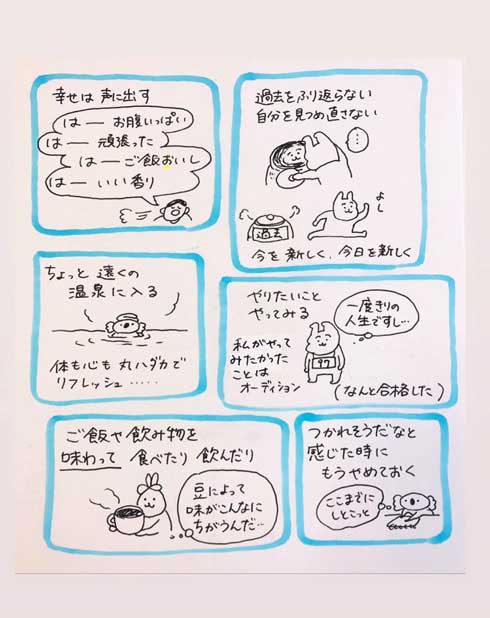 幸せは 声に出す
はー お腹いっぱい
はー 頑張った
はー ご飯おいし
はー いい香り
過去をふり返らない
自分を見つめ直さない
…
よし
過去
今を新しく、今日を新しく
ちょっと 遠くの
温泉に入る
体も心も 丸ハダカで
リフレッシュ……
やりたいこと
やってみる
一度きりの
人生ですし…
私がやって
みたかった
ことは
オーディション
(なんと合格した)
ご飯や飲み物を
味わって 食べたり 飲んだり
豆によって
味がこんなに
ちがうんだ…
つかれそうだなと
感じた時に
もうやめておく
ここまでに
しとこっと